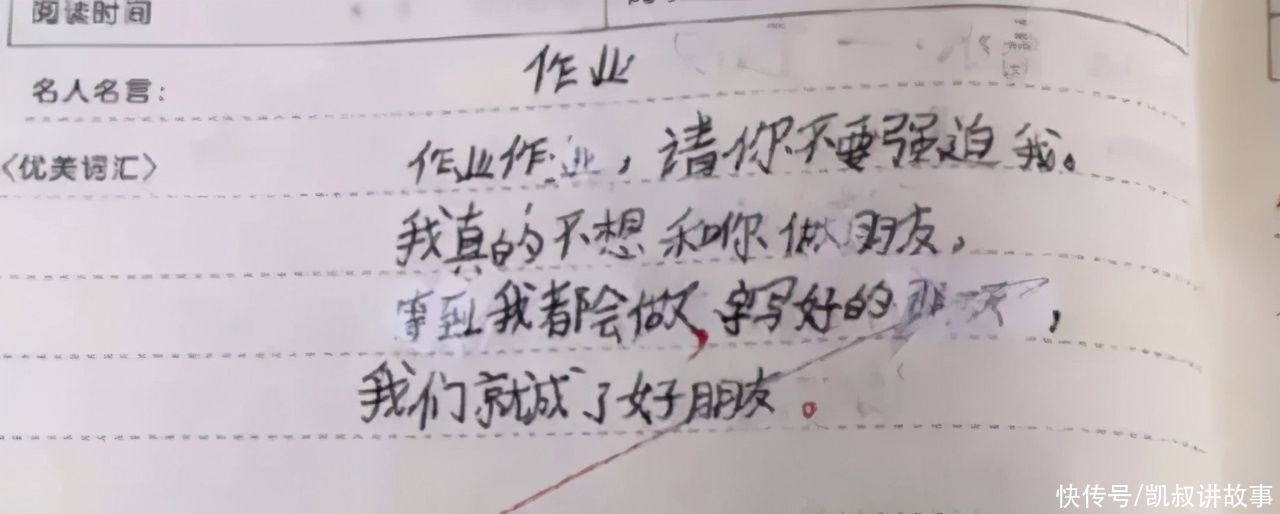 阅读时间
作业
名人名言：
作业作业，请你不要强迫我。
〈优美词汇〉
我真的不想和你做朋友，
等到我都会做，字写好的那一天，
我们就成了好朋友。
快传号/凯叔讲故事